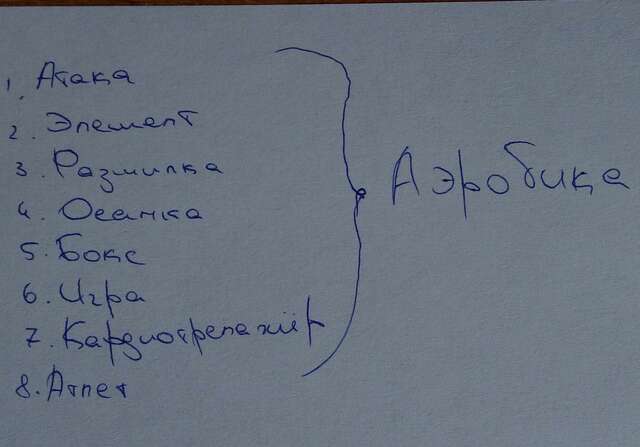 1. Атака
2. Элемент
3. Разминка
4. Осанка
5. Бокс
6. Игра
7. Кардиотренажёр
8. Атлет
Аэробика